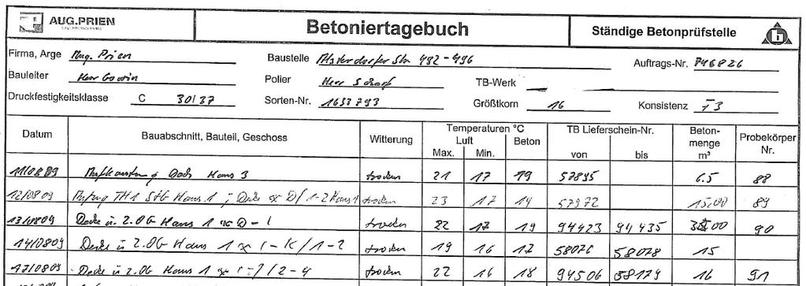 AUG.PRIEN
Betoniertagebuch
Ständige Betonprüfstelle
Firma, Arge Aug. Prien
Baustelle Alsterdorfer Str 492-496
Auftrags-Nr.
Bauleiter Herr
Polier Herr Scharf
TB-Werk
Druckfestigkeitsklasse C 30/37
Sorten-Nr. 1633793
Größtkorn 16
Konsistenz F3
Datum Bauabschnitt, Bauteil, Geschoss Witterung Temperaturen °C TB Lieferschein-Nr. Beton-menge m³ Probekörper Nr.
Luft Beton von bis
Max. Min.
11/08/09 Haus 3 trocken 21 17 19 57895 6.5 88
12/08/09 TH1 Haus 1 ; Decke D/1-2 Haus 1 trocken 23 17 14 57972 15,00 89
13/08/09 Decke in 2.OG Haus 1 D-1 trocken 22 17 19 94423 94435 90
14/08/09 Decke in 2.OG Haus 1 1-K/1-2 trocken 19 16 17 58076 58078 15
17/08/09 Decke in 2.OG Haus 1 /2-4 trocken 22 16 18 94506 58179 16 91